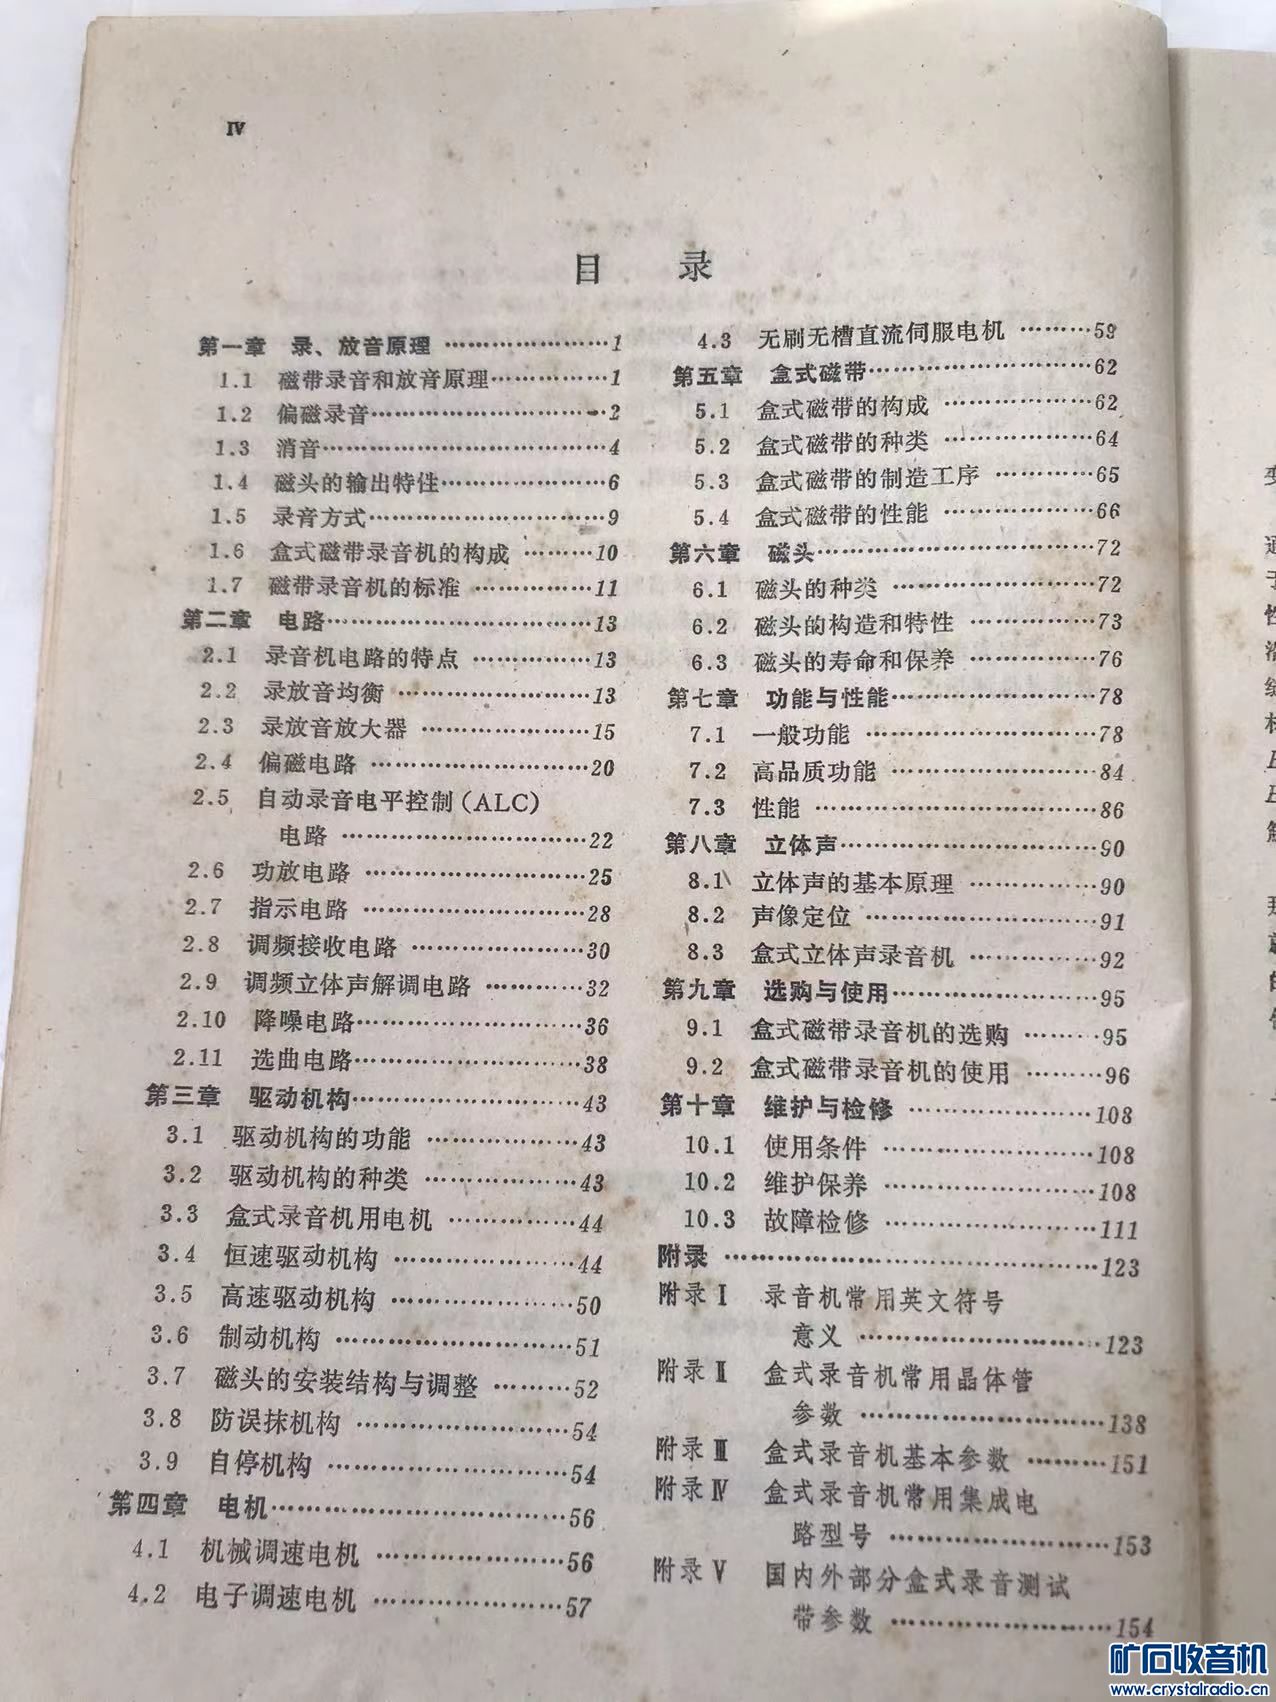 IV
目 录
第一章 录、放音原理 …………………1
1.1 磁带录音和放音原理……………1
1.2 偏磁录音…………………………2
1.3 消音………………………………4
1.4 磁头的输出特性…………………6
1.5 录音方式…………………………9
1.6 盒式磁带录音机的构成 ………10
1.7 磁带录音机的标准 ……………11
第二章 电路……………………………13
2.1 录音机电路的特点 ……………13
2.2 录放音均衡 ……………………13
2.3 录放音放大器 …………………15
2.4 偏磁电路 ………………………20
2.5 自动录音电平控制(ALC)
电路 ……………………………22
2.6 功放电路 ………………………25
2.7 指示电路 ………………………28
2.8 调频接收电路 …………………30
2.9 调频立体声解调电路 …………32
2.10 降噪电路………………………36
2.11 选曲电路………………………38
第三章 驱动机构………………………43
3.1 驱动机构的功能 ………………43
3.2 驱动机构的种类 ………………43
3.3 盒式录音机用电机 ……………44
3.4 恒速驱动机构 …………………44
3.5 高速驱动机构 …………………50
3.6 制动机构 ………………………51
3.7 磁头的安装结构与调整 ………52
3.8 防误抹机构 ……………………54
3.9 自停机构 ………………………54
第四章 电机……………………………56
4.1 机械调速电机 …………………56
4.2 电子调速电机 …………………57
4.3 无刷无槽直流伺服电机 ………59
第五章 盒式磁带………………………62
5.1 盒式磁带的构成 ………………62
5.2 盒式磁带的种类 ………………64
5.3 盒式磁带的制造工序 …………65
5.4 盒式磁带的性能 ………………66
第六章 磁头……………………………72
6.1 磁头的种类 ……………………72
6.2 磁头的构造和特性 ……………73
6.3 磁头的寿命和保养 ……………76
第七章 功能与性能……………………78
7.1 一般功能 ………………………78
7.2 高品质功能 ……………………84
7.3 性能 ……………………………86
第八章 立体声…………………………90
8.1 立体声的基本原理 ……………90
8.2 声像定位 ………………………91
8.3 盒式立体声录音机 ……………92
第九章 选购与使用……………………95
9.1 盒式磁带录音机的选购 ………95
9.2 盒式磁带录音机的使用 ………96
第十章 维护与检修 …………………108
10.1 使用条件 ……………………108
10.2 维护保养 ……………………108
10.3 故障检修 ……………………111
附录 …………………………………123
附录Ⅰ 录音机常用英文符号
意义 …………………………123
附录Ⅱ 盒式录音机常用晶体管
参数 …………………………138
附录Ⅲ 盒式录音机基本参数 ………151
附录Ⅳ 盒式录音机常用集成电
路型号 ………………………153
附录Ⅴ 国内外部分盒式录音测试
带参数 ………………………154
矿石收音机
www.crystalradio.cn